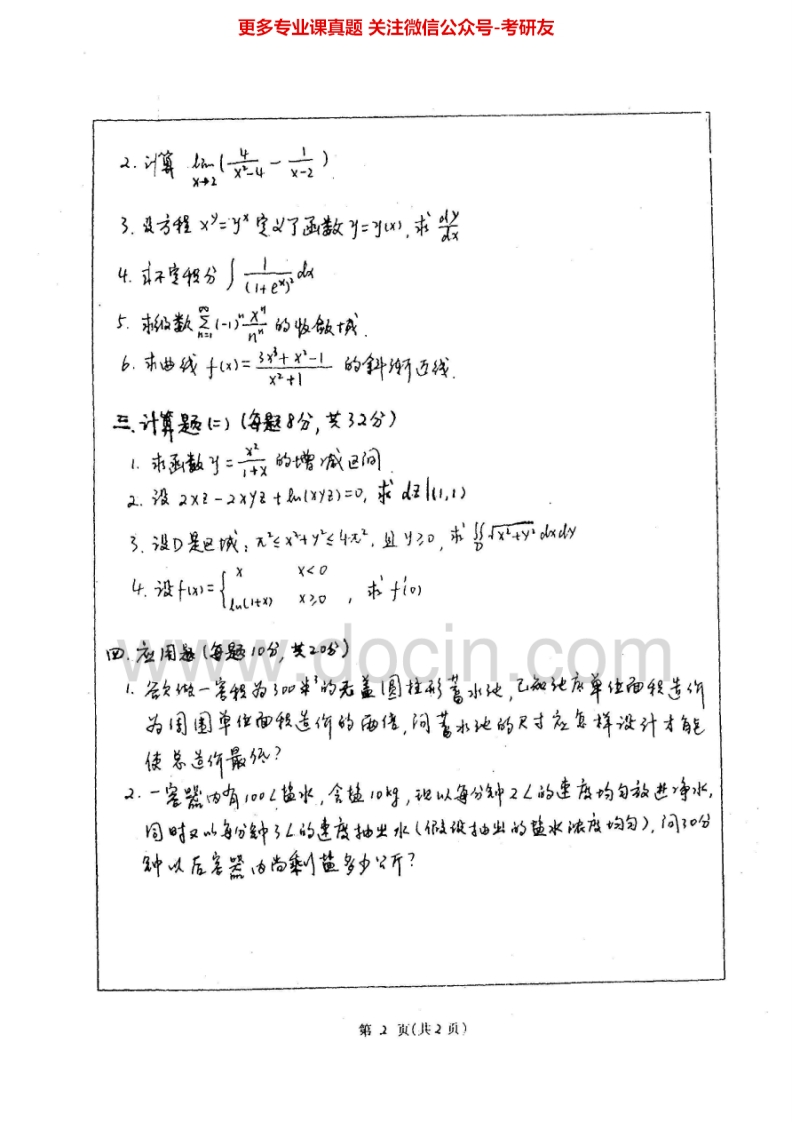 更多专业课真题 关注微信公众号-考研友
2. 计算 lim x→2 (4/(x²-4) - 1/(x-2))
3. 设方程 x^y = y^x 定义了函数 y=y(x), 求 dy/dx
4. 求不定积分 ∫ 1/(1+e^x)² dx
5. 求级数 ∑_{n=1}^{∞} (-1)^n x^n/n^n 的收敛域.
6. 求曲线 f(x) = (3x³+x²-1)/(x²+1) 的斜渐近线.
三. 计算题(二) (每题8分, 共32分)
1. 求函数 y = x²/(1+x) 的增减区间
2. 设 2xz-2xyz+ln(xyz)=0, 求 dz|(1,1)
3. 设D是区域: π²≤x²+y²≤4π², 且 y≥0, 求 ∬_D √(x²+y²) dxdy
4. 设 f(x) = { x x<0
ln(1+x) x≥0 , 求 f'(0)
www.docin.com
四. 应用题 (每题10分, 共20分)
1. 欲做一容积为300米³的无盖圆柱形蓄水池, 已知池底单位面积造价
为周围单位面积造价的两倍, 问蓄水池的尺寸应怎样设计才能
使总造价最低?
2. 一容器内有100L盐水, 含盐10kg, 现以每分钟2L的速度均匀放进净水,
同时又以每分钟3L的速度抽出水(假设抽出的盐水浓度均匀), 问30分
钟以后容器内尚剩盐多少公斤?
第 2 页(共2页)